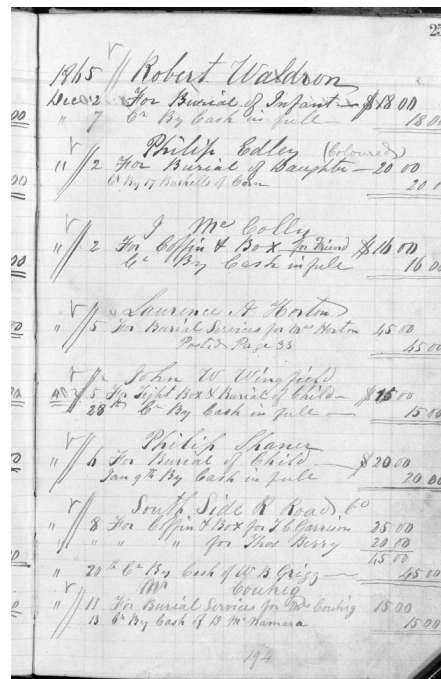 23
1865 Robert Waldron
Dec 2 For Burial of Infant — $18 00
" 7 Cr By Cash in full — 18 00
Philip Edley (Coloured)
" 2 For Burial of Daughter — 20 00
Cr By 17 Bushells of Corn 20 0
J McColly
" 2 For Coffin & Box for Friend $16 00
Cr By Cash in full 16 00
Laurence A Horton
" 5 For Burial Services for Mrs Horton 45 00
Posted Page 33 45 00
John W Wingfield
" 5 For Tight Box & Burial of Child — $15 00
28th Cr By Cash in full — 15 00
Philip Shaner
" 6 For Burial of Child — $20 00
Jan 9th By Cash in full 20 00
South Side R Road Co
" 8 For Coffin & Box for J C Garrison 25 00
" " " " for Thos Berry 20 00
45 00
" 20th Cr By Cash of W B Grigg — 45 00
Mr Couhig
" 11 For Burial Services for Mrs Couhig 15 00
13 Cr By Cash of D McNamara 15 00
194